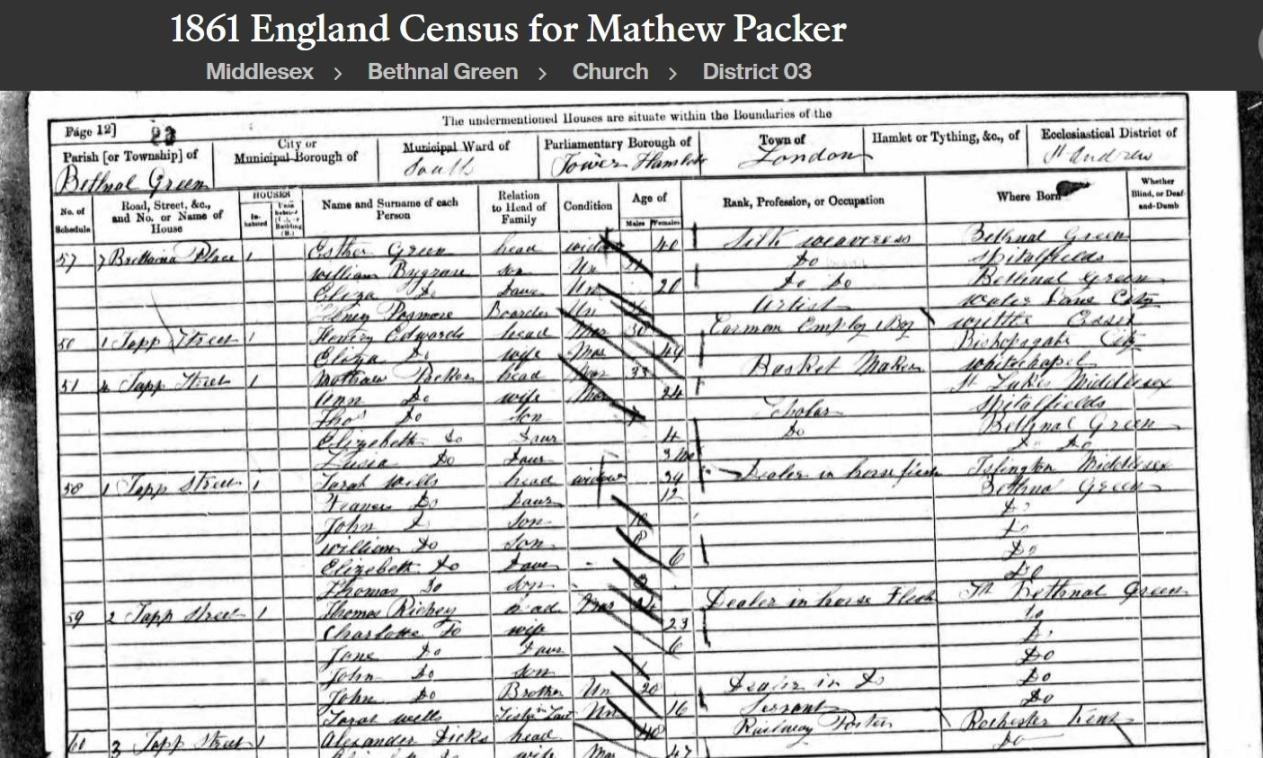 1861 England Census for Mathew Packer
Middlesex > Bethnal Green > Church > District 03
The undermentioned Houses are situate within the Boundaries of the
Page 12] 23
Parish [or Township] of City or Municipal Borough of Municipal Ward of Parliamentary Borough of Town of Hamlet or Tything, &c., of Ecclesiastical District of
Bethnal Green South Tower Hamlets London St Andrew
No. of Schedule Road, Street, &c., and No. or Name of House HOUSES Inhabited Name and Surname of each Person Relation to Head of Family Condition Age of Males Females Rank, Profession, or Occupation Where Born Whether Blind, or Deaf-and-Dumb
57 7 Brittania Place 1 Esther Green head widow 40 Silk weaveress Bethnal Green
William son Un Do Spitalfields
Eliza Do Daur Un 20 Do Do Bethnal Green
Henry Boarder Un Artist Water Lane City
50 1 Tapp Street 1 Henry Edwards head Mar Carman Essex
Eliza Do wife Mar 49 Bishopsgate City
51 4 Tapp Street 1 Mathew Packer head Mar 33 Basket Maker Whitechapel
Ann Do wife Mar 24 St Lukes Middlesex
Thos Do son Scholar Spitalfields
Elizabeth Do Daur 4 Do Bethnal Green
Do Daur Do Do
58 1 Tapp Street 1 Sarah Wells head widow 39 Dealer in horse flesh Islington Middlesex
Frances Do Daur 12 Bethnal Green
John Do son 10 Do
William Do son 8 Do
Elizabeth Do Daur 6 Do
Thomas Do son Do
59 2 Tapp Street 1 Thomas Richey head Mar Dealer in horse Flesh Bethnal Green
Charlotte Do wife 23 Do
Jane Do Daur 6 Do
John Do son Do
John Do Brother Un 20 Dealer in Do Do
Sarah Wells Sister Law Un 16 Servant Do
3 Tapp Street 1 Alexander Dicks head 40 Railway Porter Rochester Kent
wife Mar 47 Do